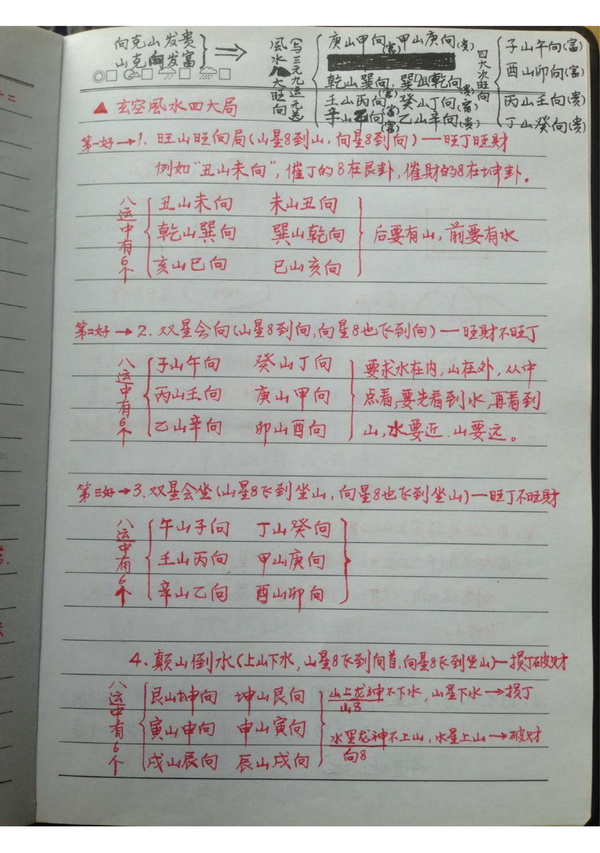 向克山发贵
山克向发富
風水八大旺向
(与三元九运无关)
庚山甲向(富) 甲山庚向(贵)
乾山巽向, 巽山乾向(贵)
壬山丙向(富) 癸山丁向(富)
辛山乙向(富) 乙山辛向(贵)
四大次旺向
子山午向(富)
酉山卯向(富)
丙山壬向(贵)
丁山癸向(贵)
▲ 玄空風水四大局
第一好→1. 旺山旺向局(山星8到山, 向星8到向)—旺丁旺財
例如"丑山未向", 催丁的8在艮卦, 催財的8在坤卦。
八运中有6个
丑山未向 未山丑向
乾山巽向 巽山乾向
亥山巳向 巳山亥向
后要有山, 前要有水
第二好→2. 双星会向(山星8到向, 向星8也飞到向)—旺財不旺丁
八运中有6个
子山午向 癸山丁向
丙山壬向 庚山甲向
乙山辛向 卯山酉向
要求水在内, 山在外, 从中
点看, 要先看到水, 再看到
山, 水要近 山要远。
第三好→3. 双星会坐(山星8飞到坐山, 向星8也飞到坐山)—旺丁不旺財
八运中有6个
午山子向 丁山癸向
壬山丙向 甲山庚向
辛山乙向 酉山卯向
4. 颠山倒水(上山下水, 山星8飞到向首. 向星8飞到坐山)—损丁破財
八运中有6个
艮山坤向 坤山艮向
寅山申向 申山寅向
戌山辰向 辰山戌向
山上龙神不下水, 山星下水→损丁
山8
水里龙神不上山, 水星上山→破財
向8